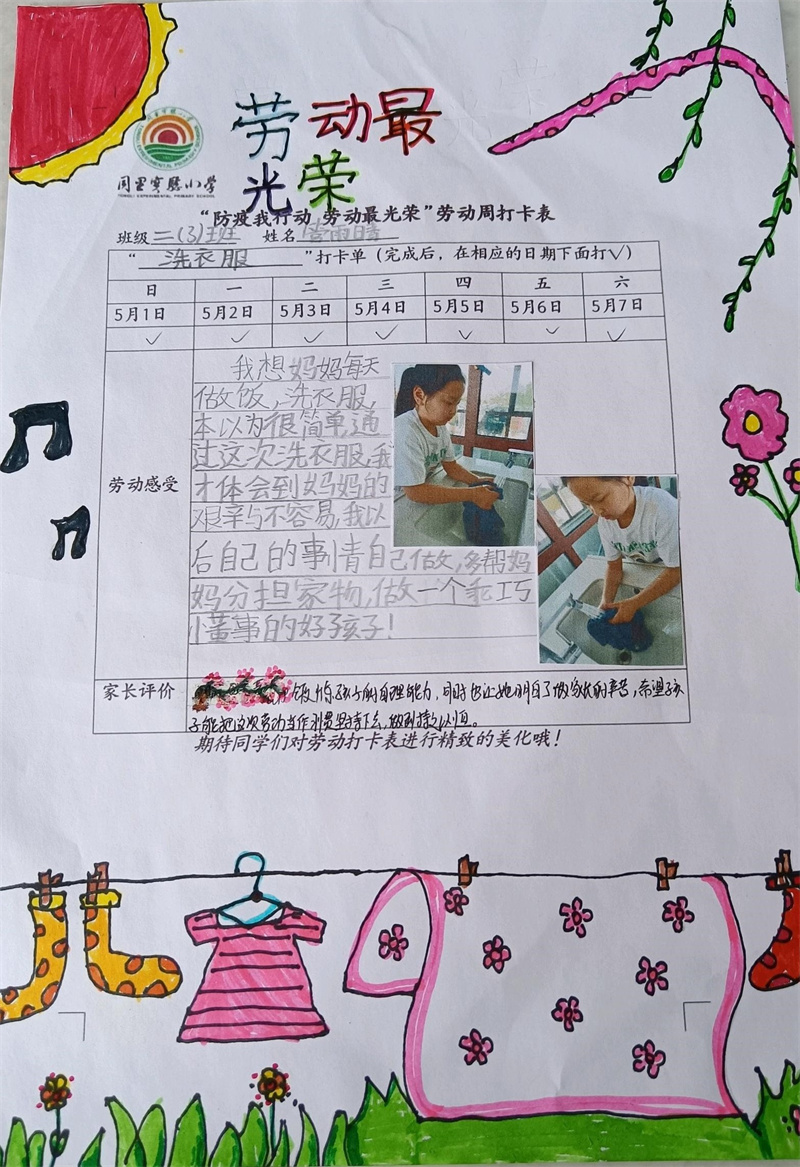 劳动最
光荣
同里实验小学
TONGLI EXPERIMENTAL PRIMARY SCHOOL
“防疫我行动 劳动最光荣”劳动周打卡表
班级 二(3)班 姓名
“ 洗衣服 ”打卡单（完成后，在相应的日期下面打√）
日 一 二 三 四 五 六
5月1日 5月2日 5月3日 5月4日 5月5日 5月6日 5月7日
√ √ √ √ √ √ √
劳动感受
我想妈妈每天
做饭，洗衣服，
本以为很简单，通
过这次洗衣服，我
才体会到妈妈的
艰辛与不容易，我以
后自己的事情自己做，多帮妈
妈分担家物，做一个乖巧
小董事的好孩子！
家长评价
孩子的自理能力，同时也让她明白了做家务的辛苦，希望孩
子能把这次劳动当作习惯坚持下去，做到持之以恒。
期待同学们对劳动打卡表进行精致的美化哦！